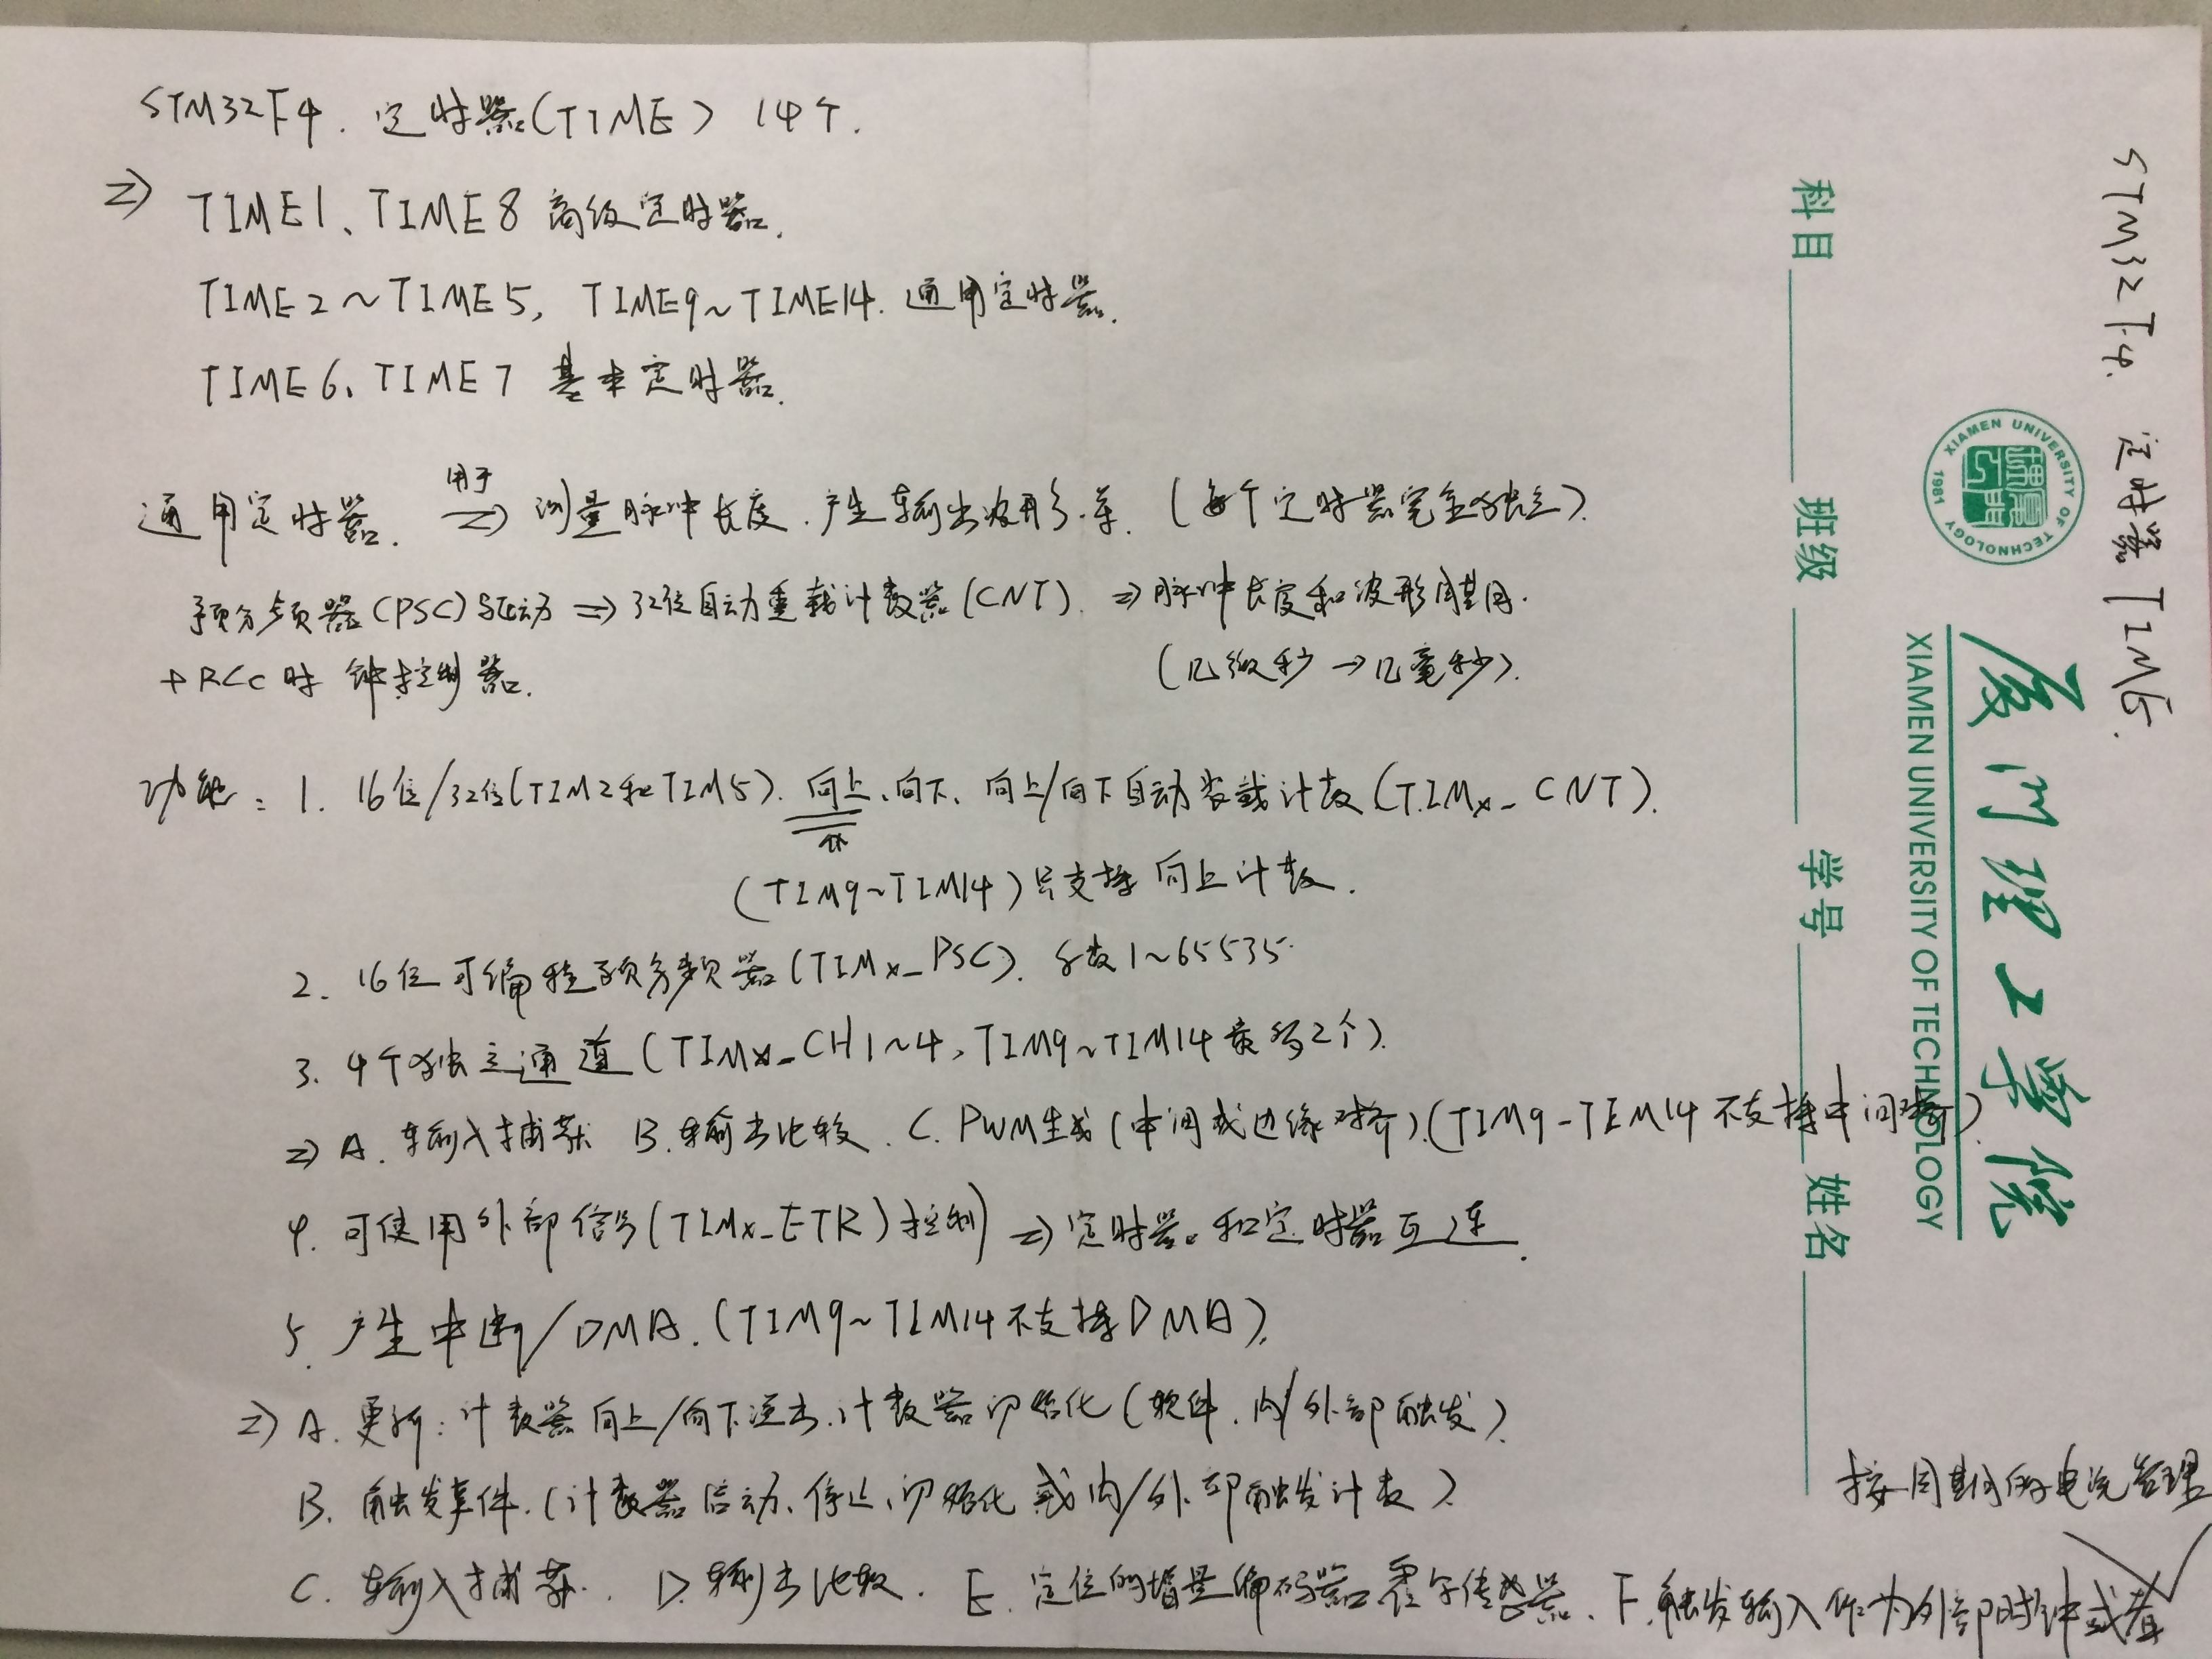 STM32F4. 定时器(TIME) 14个.
⇒ TIME1、TIME8 高级定时器.
TIME2～TIME5, TIME9～TIME14. 通用定时器.
TIME6、TIME7 基本定时器.
通用定时器. 用于⇒ 测量脉冲长度.产生输出波形.等. (每个定时器完全独立).
预分频器(PSC)驱动 ⇒ 32位自动重载计数器(CNT). ⇒ 脉冲长度和波形周期.
+RCC时钟控制器. (几微秒→几毫秒).
功能: 1. 16位/32位(TIM2和TIM5). 向上、向下、向上/向下自动装载计数(TIMx_CNT).
(TIM9~TIM14)只支持向上计数.
2. 16位可编程预分频器(TIMx_PSC). 分数1~65535.
3. 4个独立通道(TIMx_CH1~4, TIM9~TIM14最多2个).
⇒ A. 输入捕获 B. 输出比较. C. PWM生成(中间或边缘对齐).(TIM9-TIM14不支持中间对齐)
4. 可使用外部信号(TIMx_ETR)控制 ⇒ 定时器.和定时器互连.
5. 产生中断/DMA.(TIM9~TIM14不支持DMA).
⇒ A. 更新: 计数器向上/向下溢出.计数器初始化(软件.内/外部触发).
B. 触发事件.(计数器启动、停止、初始化或内/外部触发计数).
C. 输入捕获. D. 输出比较. E. 定位的增量编码器 霍尔传感器. F. 触发输入作为外部时钟或者
按周期的电流管理
STM32F4. 定时器 TIME.
XIAMEN UNIVERSITY OF TECHNOLOGY
1981
厦门理工学院
XIAMEN UNIVERSITY OF TECHNOLOGY
科目 班级 学号 姓名